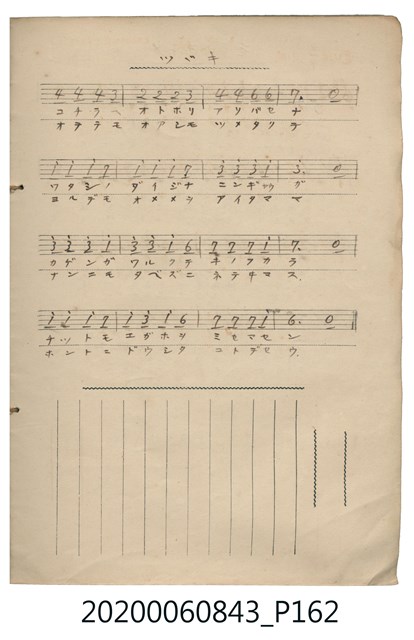 ツバキ
4 4 4 3 | 2 2 2 3 | 4 4 6 6 | 7. 0
コチラヘ オトホリ アソバセナ
オチチモ オアシモ ツメタソラ
1 1 1 7 | 1 1 1 7 | 3 3 3 1 | 3. 0
ワタシノ ダイジナ ニンギョウガ
ヨルデモ オメメシ アイタママ
3 3 3 1 | 3 3 1 6 | 7 7 7 1 | 7. 0
カゲンガ ワルクテ キノフカラ
ナンニモ タベズニ ネテヰマス
1 1 1 7 | 1 3 1 6 | 7 7 7 1 | 6. 0
チットモ エガホシ ミセマセン
ホントニ ドウシタ コトデセウ
20200060843_P162